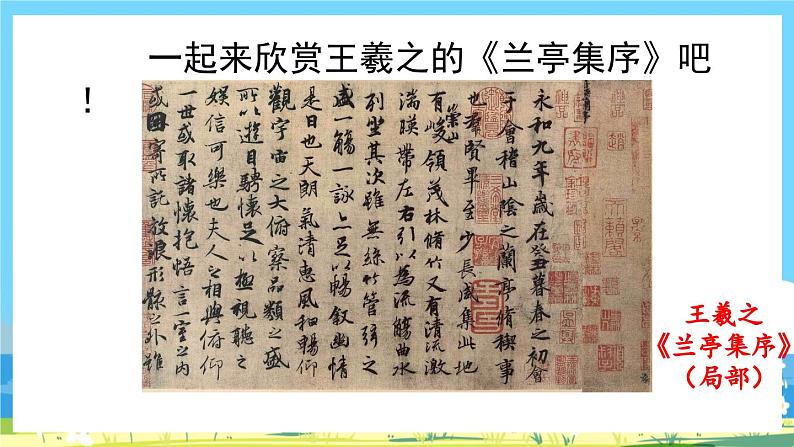 一起来欣赏王羲之的《兰亭集序》吧
！
永和九年歲在癸丑暮春之初會
于會稽山陰之蘭亭脩稧事
也群賢畢至少長咸集此地
有崇山峻領茂林脩竹又有清流激
湍暎帶左右引以為流觴曲水
列坐其次雖無絲竹管弦之
盛一觴一詠上足以暢敘幽情
是日也天朗氣清惠風和暢仰
觀宇宙之大俯察品類之盛
所以遊目騁懷足以極視聽之
娛信可樂也夫人之相與俯仰
一世或取諸懷抱悟言一室之內
或因寄所託放浪形骸之外雖
王羲之
《兰亭集序》
（局部）